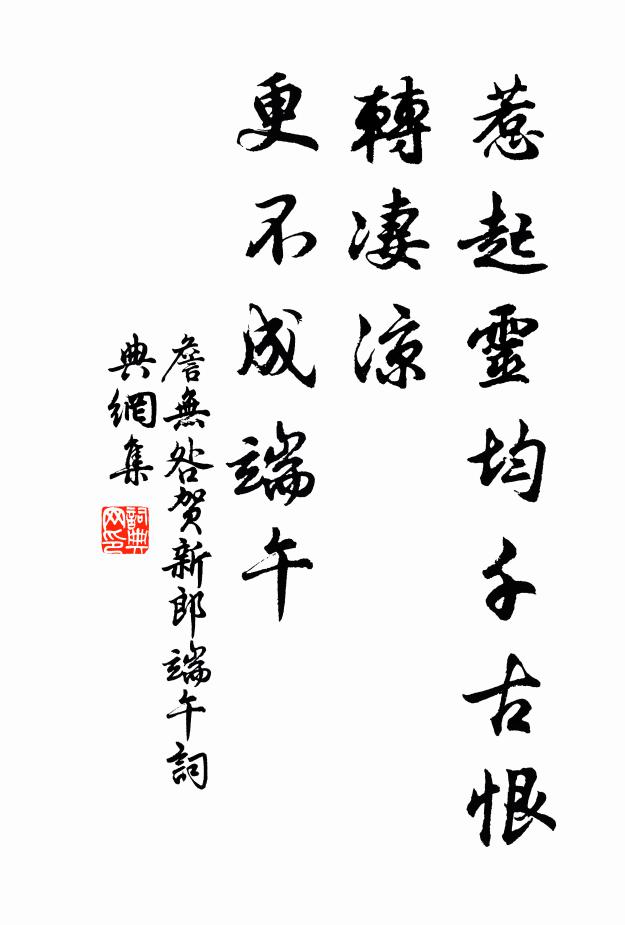 惹起靈均千古恨
轉凄涼
更不成端午
詹無咎賀新郎端午詞
典網集
詞典
网印